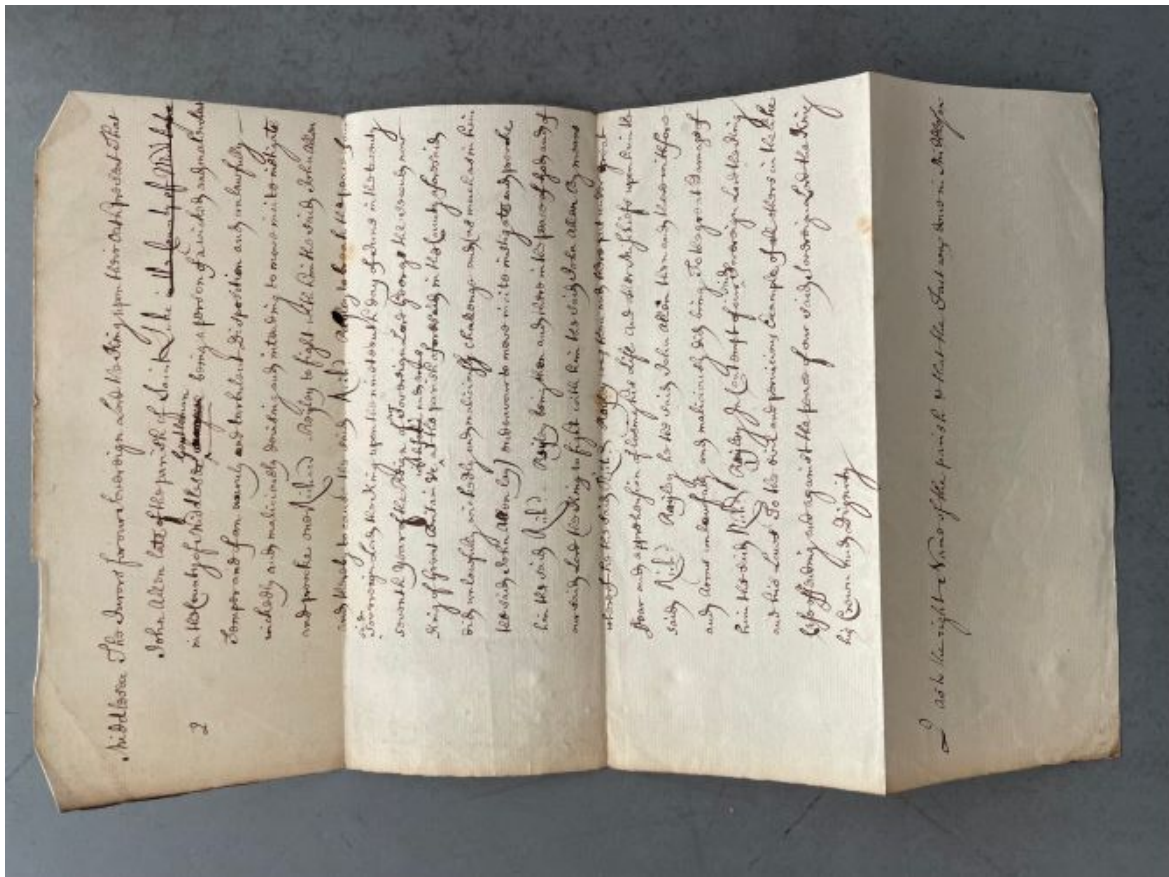 Middlesex The Jurors for our Sovereign Lord the King upon their Oath present That
John Allen late of the parish of Saint Luke in the County of Middlesex
in the County of Middlesex Gentleman being a person of a wicked and malicious
Temper and of an unruly and turbulent Disposition and unlawfully
wickedly and maliciously devising and intending to move incite instigate
and provoke one Richard Bayley to fight with him the said John Allen
and thereby to cause the said Richd Bayley to break the peace of our
said Sovereign Lord the King upon the day of June in the twenty
seventh year of the Reign of Sovereign Lord George the second now
King of Great Britain &c at the parish aforesaid in the County aforesaid
did unlawfully wickedly and maliciously challenge and (as much as in him
the said John Allen lay) endeavour to move incite instigate and provoke
him the said Richd Bayley being then and there in the peace of God and of
our said Lord the King to fight with him the said John Allen By means
whereof he the said Richd Bayley then and there put in great
Fear and apprehension of losing his Life and
said Richd Bayley he the said John Allen then and there with force
and Arms unlawfully and maliciously did bring To the great Damage of
him the said Richd Bayley In Contempt of our said Sovereign Lord the King
and his Laws To the evil and pernicious Example of all others in the like
Case offending and against the peace of our said Sovereign Lord the King
his Crown and Dignity
Q
Q as to the right Name of the parish & that the Fact was done in Middlesex